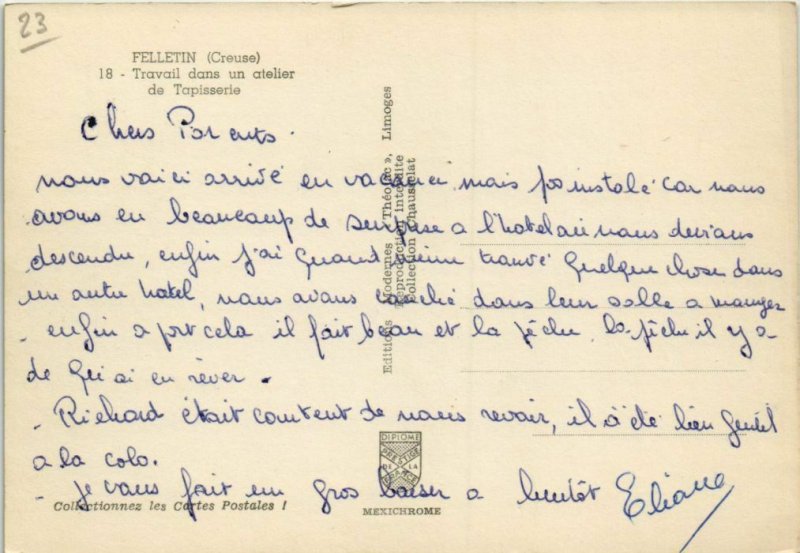 23
FELLETIN (Creuse)
18 - Travail dans un atelier
de Tapisserie
Chers Parents.
nous voici arrivé en vacance, mais pas instalé car nous
avons eu beaucoup de surprise a l'hotel ou nous devions
descendre, enfin j'ai quand même trouvé quelque chose dans
un autre hotel, nous avons couché dans leur salle a manger
- enfin a part cela il fait beau et la pêche, la pêche il y a
de quoi en rêver.
- Richard était content de nous revoir, il a été bien gentil
a la colo.
- Je vous fait un gros baiser a bientôt Eliane
Editions Modernes « Théojac », Limoges
Reproduction interdite
Collection Chausselat
DIPLOME
PRESTIGE
DE LA
FRANCE
Collectionnez les Cartes Postales !
MEXICHROME